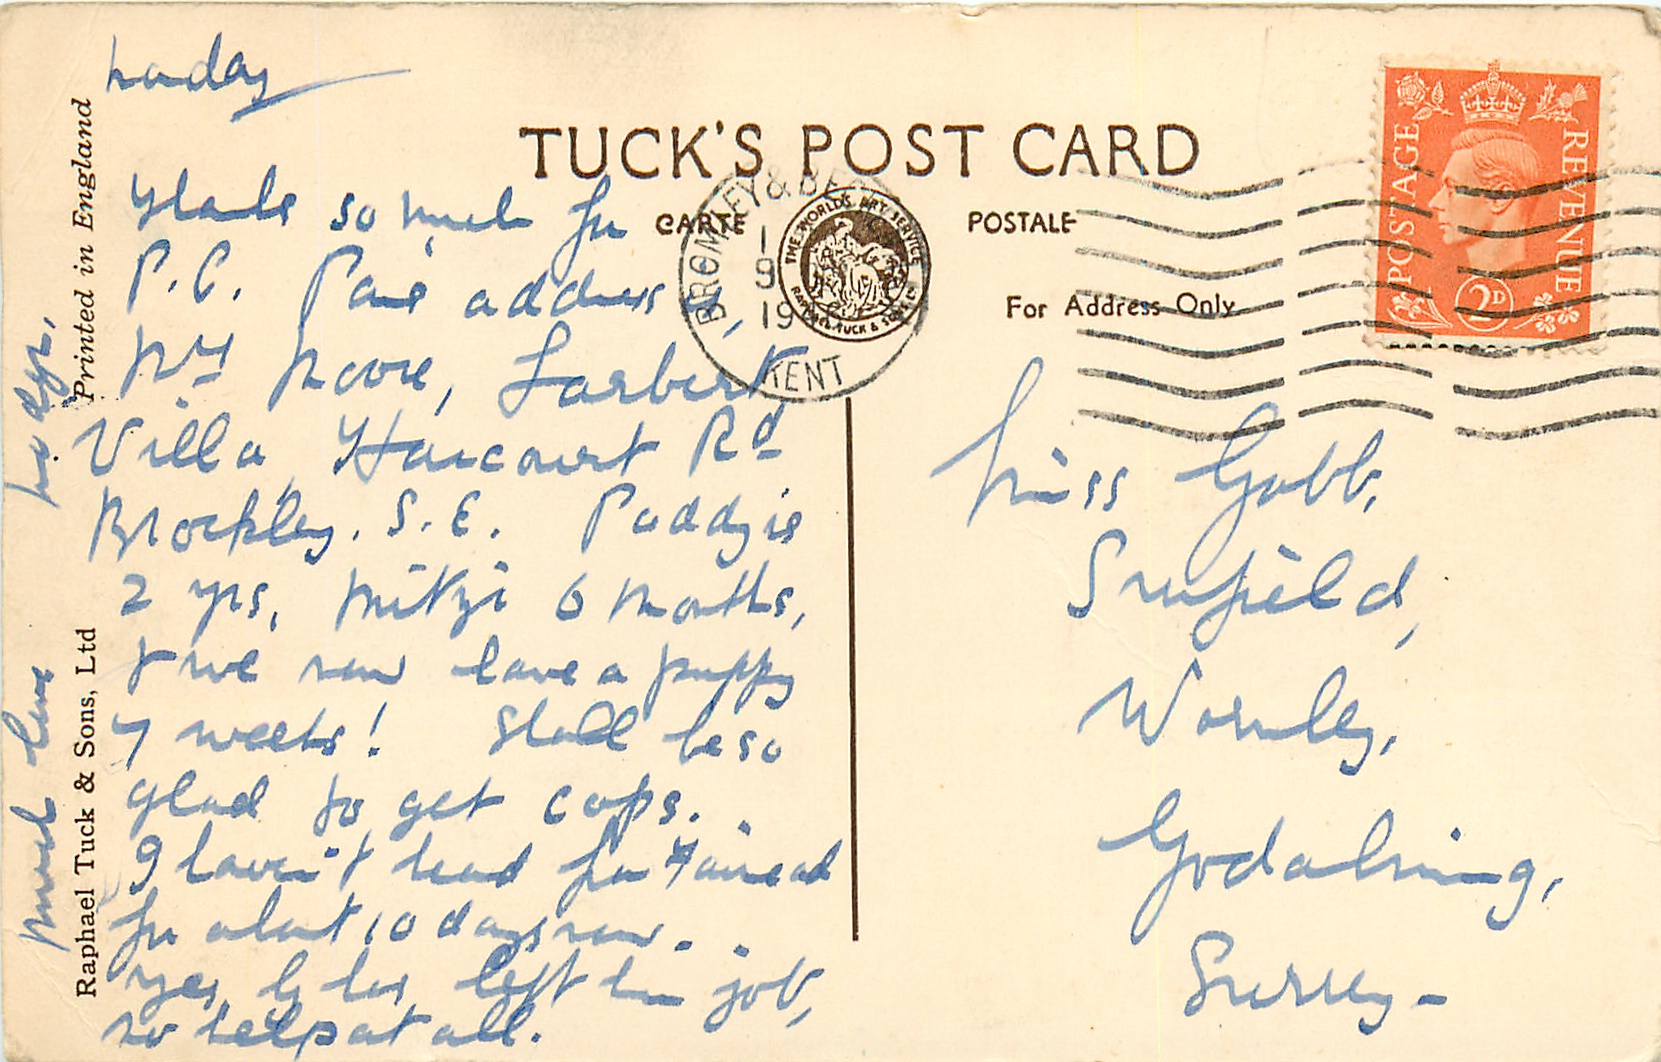 Monday
Thanks so much for
P.C. Pam's address is,
Mrs Moore, Larbert
Villa, Harcourt Rd
Brockley. S.E. Paddy is
2 yrs, Mitzi 6 months,
& we now have a puppy
7 weeks! Shall be so
glad to get cops.
I haven't heard from
for about 10 days now.
Yes, has left her job,
no help at all.
Much love
TUCK'S POST CARD
CARTE POSTALE
For Address Only
BROMLEY & BE
19
KENT
THE WORLD'S ART SERVICE
RAPHAEL TUCK & SONS LTD
POSTAGE
REVENUE
2D
Miss Gabb,
Sunfield,
Wormley,
Godalming,
Surrey-
Printed in England
Raphael Tuck & Sons, Ltd